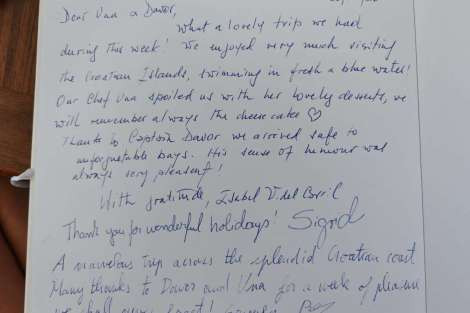 Dear Una & Davor,
What a lovely trip we had
during this week! We enjoyed very much visiting
the Croatian Islands, swimming in fresh & blue water!
Our Chef Una spoiled us with her lovely desserts, we
will remember always the cheese cake ♡
Thanks to Captain Davor we arrived safe to
unforgettable bays. His sense of humour was
always very pleasent!
With gratitude, Isabel V. del
Thank you for wonderful holidays! Sigrid
A marvelous trip across the splendid Croatian coast
Many thanks to Davor and Una for a week of pleasure
we shall never forget!